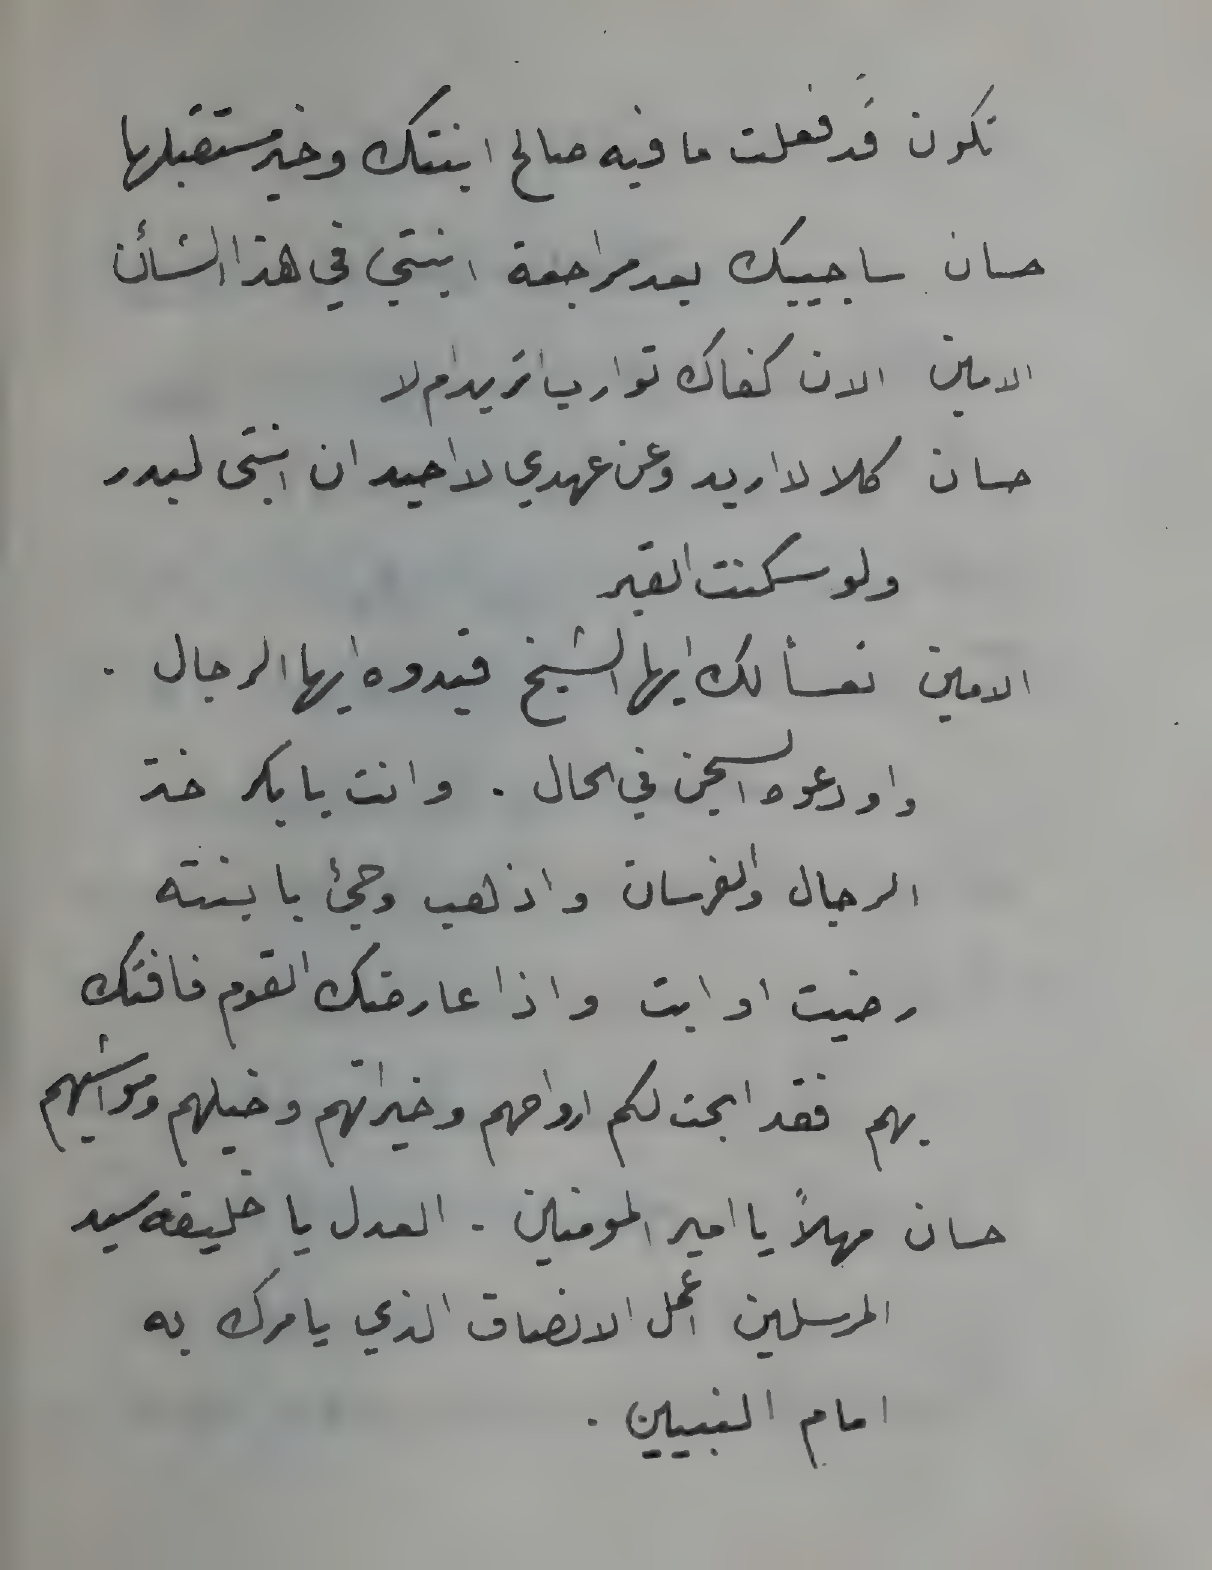 تكون قد فعلت ما فيه صالح ابنتك وخير مستقبلها
حسان ساجيبك بعد مراجعة ابنتي في هذا الشأن
الامين الان كفاك توارب اتريد ام لا
حسان كلا لا اريد وعن عهدي لا احيد ان ابنتي لبدر
ولو سكنت القبر
الامين تعسا لك ايها الشيخ قيدوه ايها الرجال .
واودعوه السجن في الحال . وانت يا بكر خذ
الرجال والفرسان واذهب وجئ بابنته
رضيت او ابت واذا عارضتك القوم فافتك
بهم فقد ابحت لكم ارواحهم وخيراتهم وخيلهم ومواشيهم
حسان مهلاً يا امير المومنين . العدل يا خليفه سيد
المرسلين اعمل الانصاف الذي يامرك به
امام النبيين .